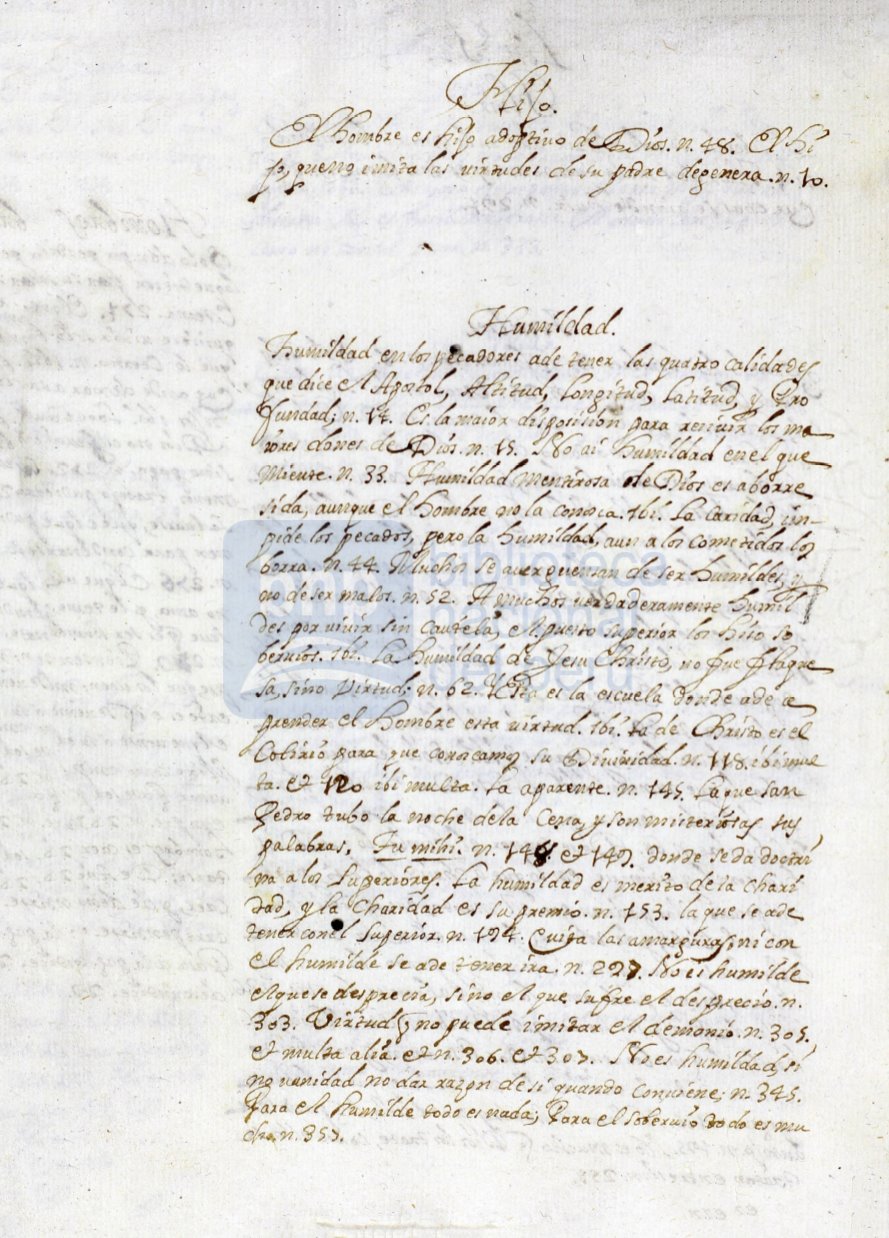 Hijo.
El hombre es hijo adoptivo de Dios. n. 48. El hi
jo, que no imita las virtudes de su padre degenera. n. 10.
Humildad.
Humildad en los pecadores a de tener las quatro calidades
que dice el Apostol, Altitud, Longitud, Latitud, y Pro
fundad; n. 14. Es la maior disposision para recivir los ma
iores dones de Dios. n. 15. No ai humildad en el que
miente. n. 33. Humildad mentirosa de Dios es aborre
sida, aunque el hombre no la conosca. ibi. La caridad, im-
pide los pecados, pero la humildad, aun a los cometidos los
borra. n. 44. Muchos se averguensan de ser humildes, y
no de ser malos. n. 52. A muchos verdaderamente humil
des por vivir sin cautela, el puesto superior los hiso so
bervios. ibi. La humildad de Jesu Christo, no fue flaque
sa, sino virtud. n. 62. Esta es la escuela donde a de a
prender el hombre esta virtud. ibi. la de Christo es el
Colirio para que conoscamos su Divinidad. n. 118. ibi mul
ta. et 120 ibi multa. La aparente. n. 145. La que san
Pedro tubo la noche de la Cena, y son misteriosas sus
palabras, Tu mihi. n. 148. et 149. donde se da doctri
na a los Superiores. La humildad es merito de la Chari
dad, y la Charidad es su premio. n. 153. la que se a de
tener con el Superior. n. 194. Quita las amarguras, ni con
el humilde se a de tener ira. n. 227. No es humilde
el que se desprecia, sino el que sufre el desprecio. n.
303. Virtud q no puede imitar el demonio. n. 305.
et multa alia. et n. 306. et 307. No es humildad, si
no vanidad no dar razon de si quando conviene; n. 345.
Para el humilde todo es nada; Para el sobervio todo es mu
cho. n. 357.
biblioteca
nacional
del perú
bnp